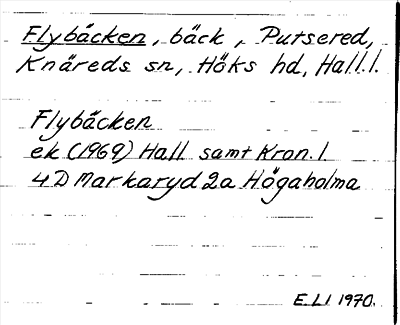 Flybäcken, bäck, Putsered,
Knäreds sn, Höks hd, Hall.l.
Flybäcken
ek (1969) Hall samt Kron.l
4D Markaryd 2a Högaholma
E.LI 1970.